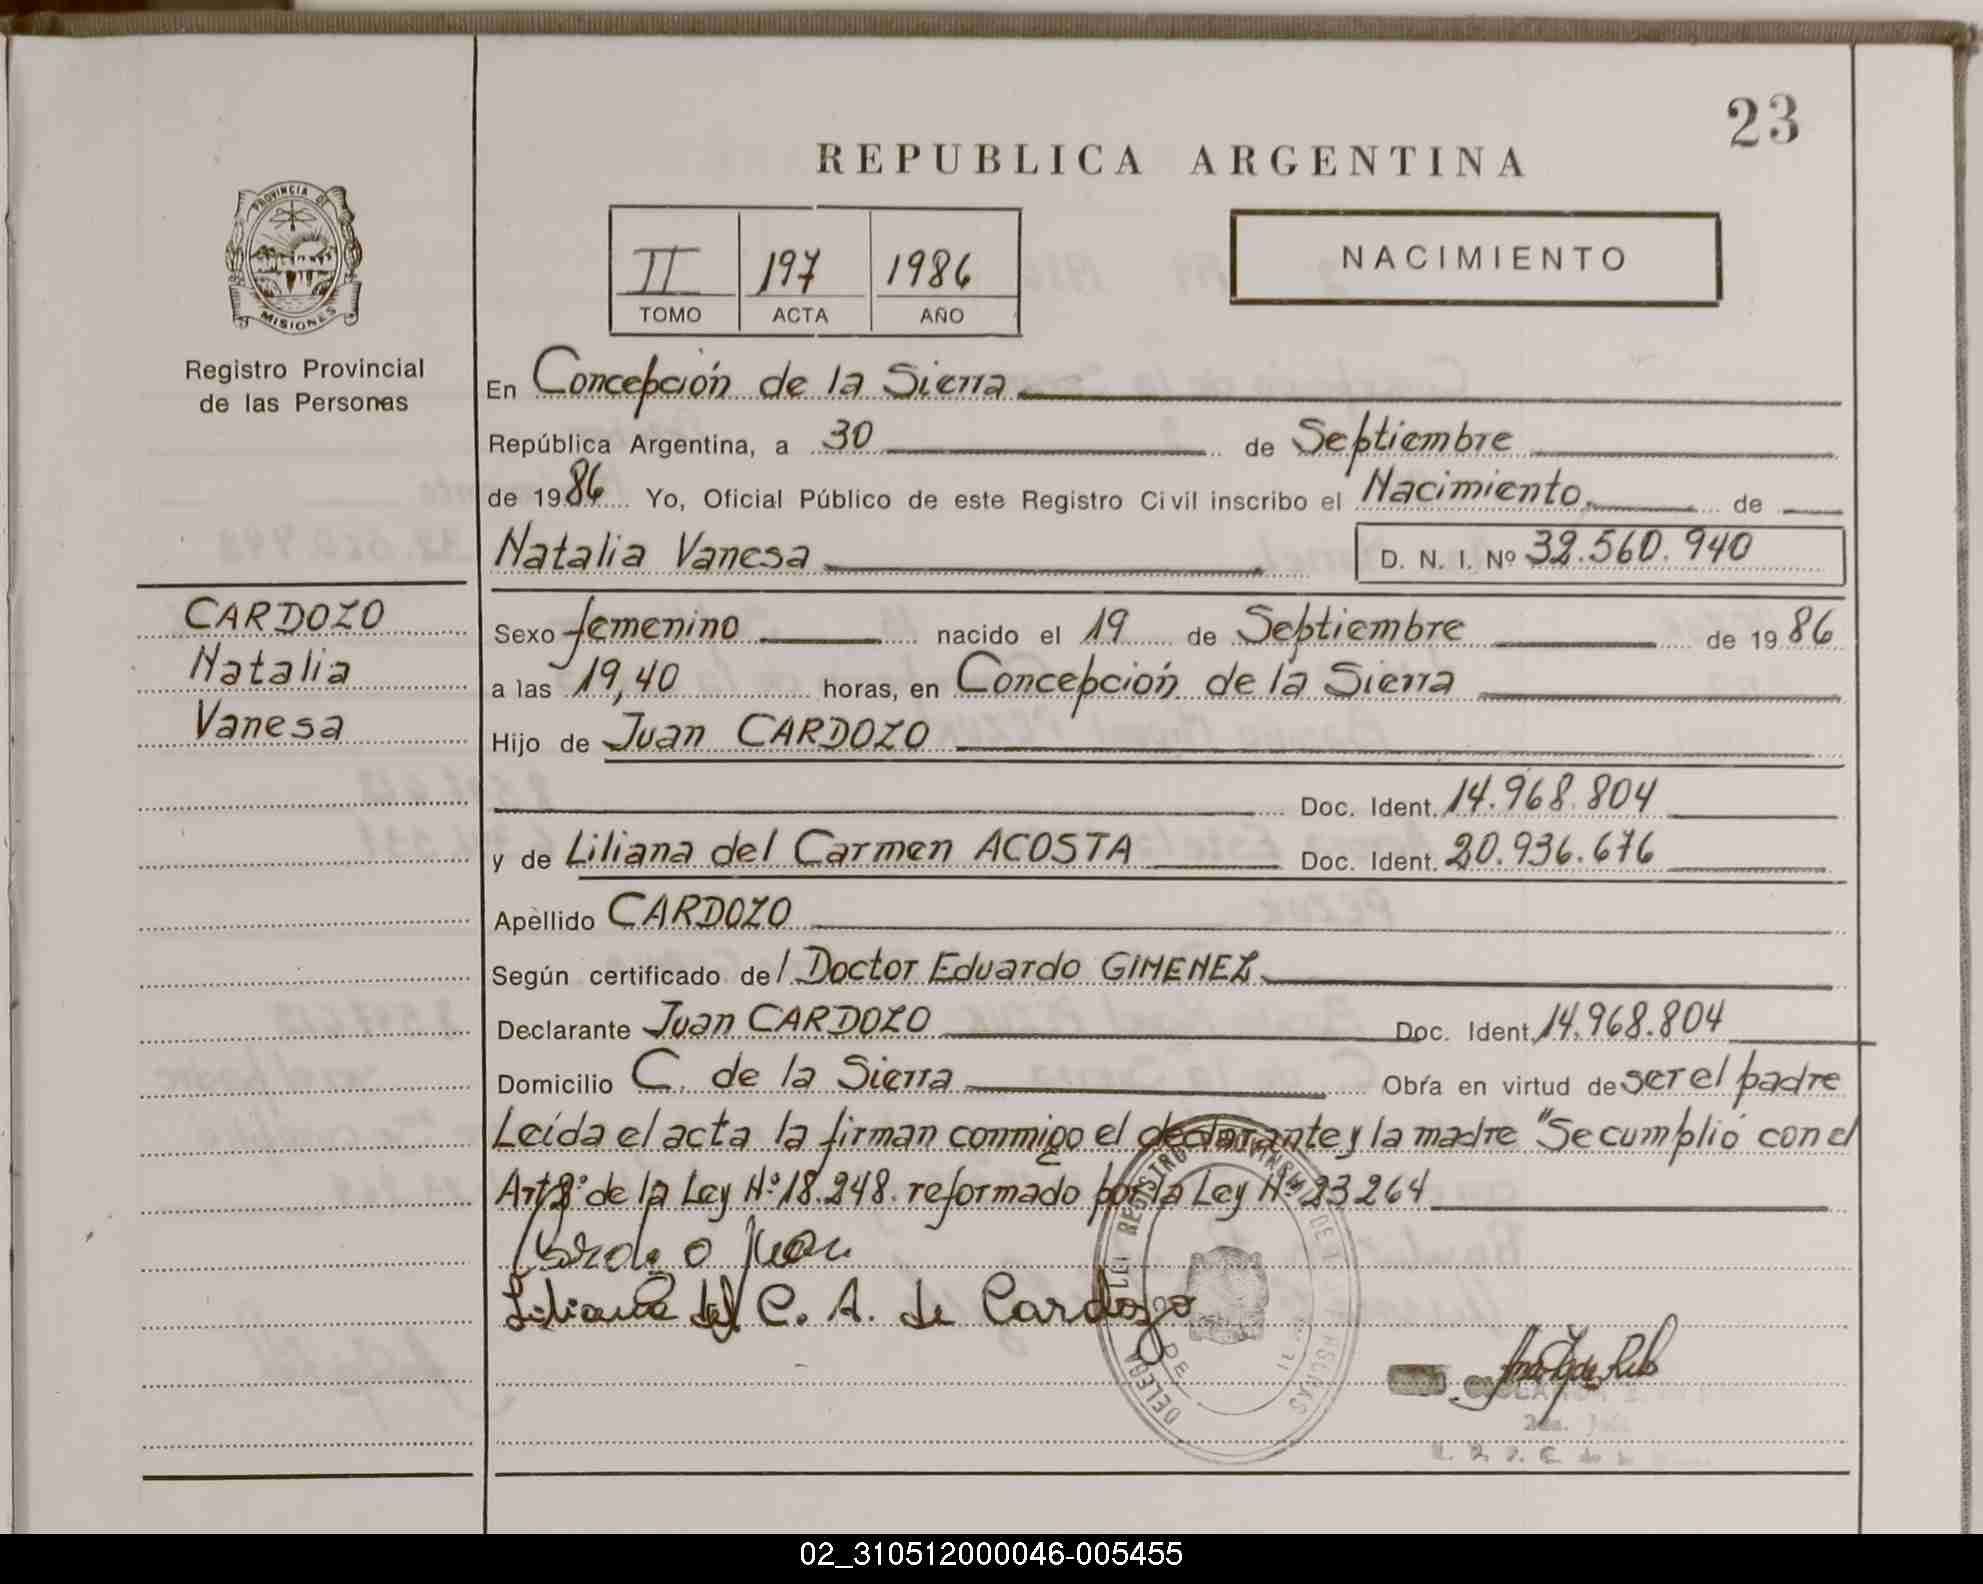 23
REPUBLICA ARGENTINA
PROVINCIA DE
MISIONES
Registro Provincial
de las Personas
II 197 1986
TOMO ACTA AÑO
NACIMIENTO
En Concepción de la Sierra
República Argentina, a 30 de Septiembre
de 1986 Yo, Oficial Público de este Registro Civil inscribo el Nacimiento de
Natalia Vanesa D. N. I. Nº 32.560.940
CARDOZO
Natalia
Vanesa
Sexo femenino nacido el 19 de Septiembre de 1986
a las 19,40 horas, en Concepción de la Sierra
Hijo de Juan CARDOZO
Doc. Ident. 14.968.804
y de Liliana del Carmen ACOSTA Doc. Ident. 20.936.676
Apellido CARDOZO
Según certificado del Doctor Eduardo GIMENEZ
Declarante Juan CARDOZO Doc. Ident. 14.968.804
Domicilio C. de la Sierra Obra en virtud de ser el padre
Leída el acta la firman conmigo el declarante y la madre "Se cumplió con el
Art 8º de la Ley Nº 18.248. reformado por la Ley Nº 23264
Cardozo Juan
Liliana del C. A. de Cardozo
02_310512000046-005455